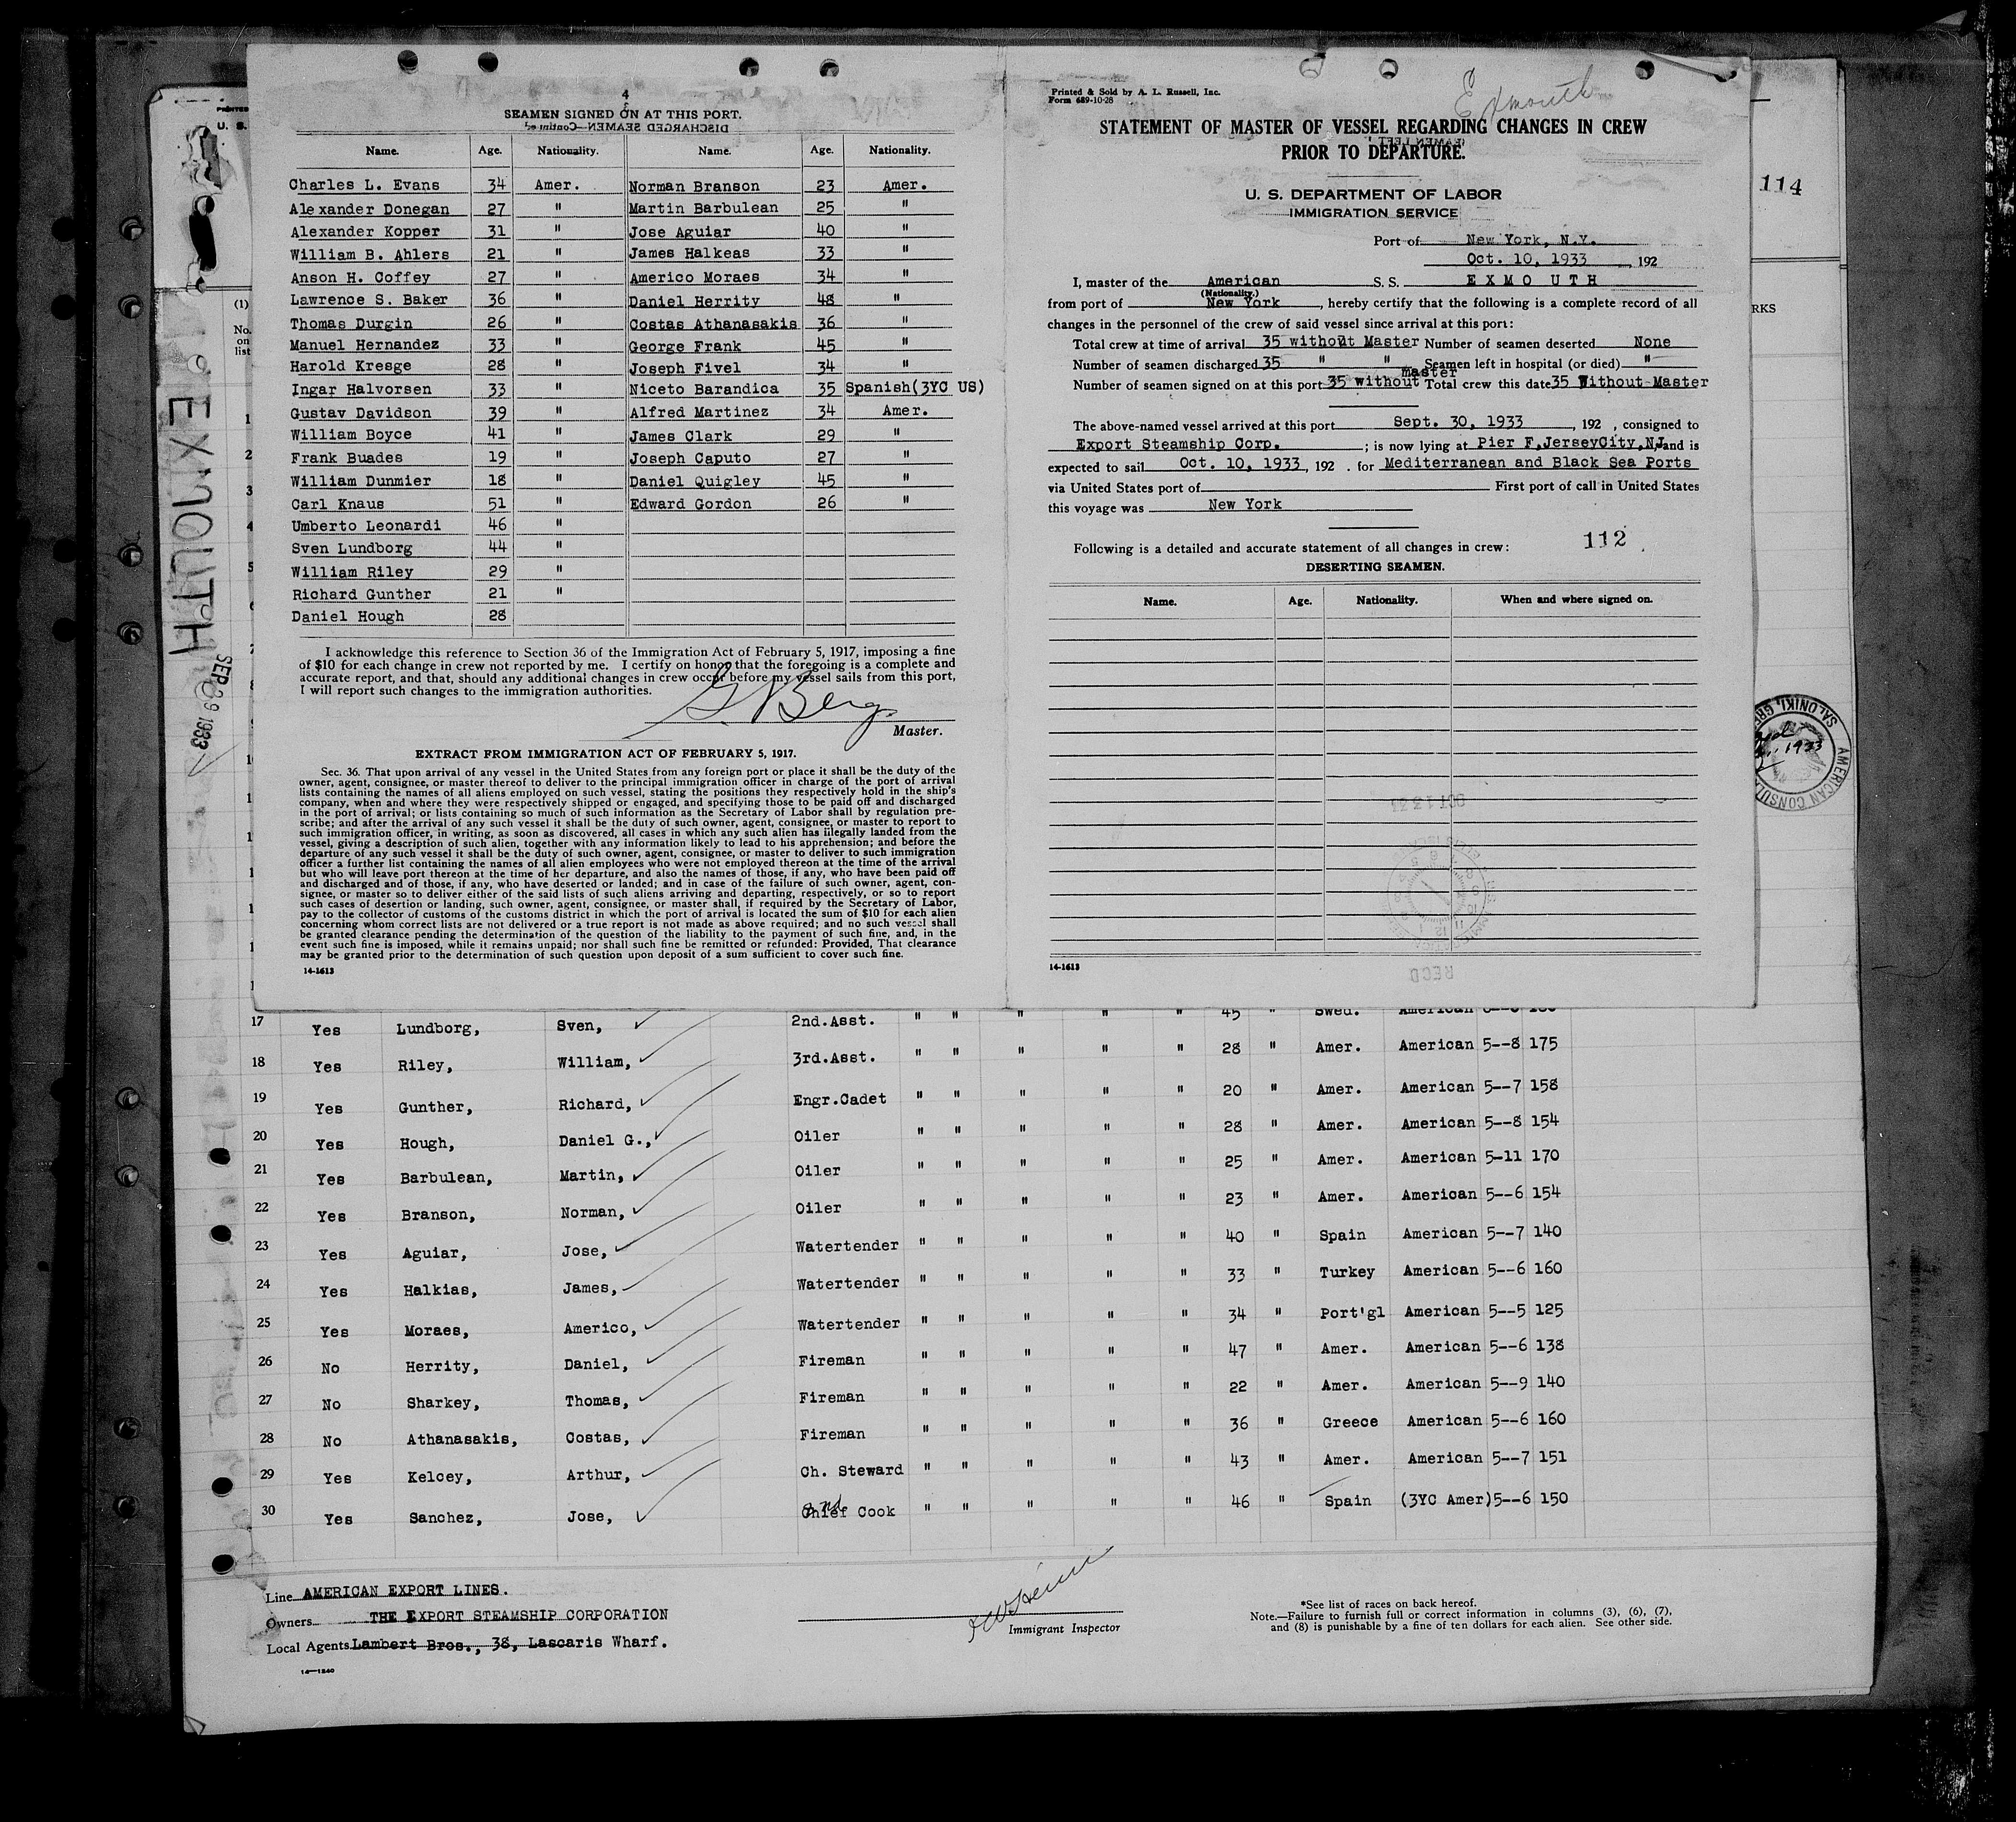 4
SEAMEN SIGNED ON AT THIS PORT.
DISCHARGED SEAMEN—Continued
Name. Age. Nationality. Name. Age. Nationality.
Charles L. Evans 34 Amer. Norman Branson 23 Amer.
Alexander Donegan 27 " Martin Barbulean 25 "
Alexander Kopper 31 " Jose Aguiar 40 "
William B. Ahlers 21 " James Halkeas 33 "
Anson H. Coffey 27 " Americo Moraes 34 "
Lawrence S. Baker 36 " Daniel Herrity 48 "
Thomas Durgin 26 " Costas Athanasakis 36 "
Manuel Hernandez 33 " George Frank 45 "
Harold Kresge 28 " Joseph Fivel 34 "
Ingar Halvorsen 33 " Niceto Barandica 35 Spanish(3YC US)
Gustav Davidson 39 " Alfred Martinez 34 Amer.
William Boyce 41 " James Clark 29 "
Frank Buades 19 " Joseph Caputo 27 "
William Dunmier 18 " Daniel Quigley 45 "
Carl Knaus 51 " Edward Gordon 26 "
Umberto Leonardi 46 "
Sven Lundborg 44 "
William Riley 29 "
Richard Gunther 21 "
Daniel Hough 28
I acknowledge this reference to Section 36 of the Immigration Act of February 5, 1917, imposing a fine
of $10 for each change in crew not reported by me. I certify on honor that the foregoing is a complete and
accurate report, and that, should any additional changes in crew occur before my vessel sails from this port,
I will report such changes to the immigration authorities.
G. Berg
Master.
EXTRACT FROM IMMIGRATION ACT OF FEBRUARY 5, 1917.
Sec. 36. That upon arrival of any vessel in the United States from any foreign port or place it shall be the duty of the
owner, agent, consignee, or master thereof to deliver to the principal immigration officer in charge of the port of arrival
lists containing the names of all aliens employed on such vessel, stating the positions they respectively hold in the ship's
company, when and where they were respectively shipped or engaged, and specifying those to be paid off and discharged
in the port of arrival; or lists containing so much of such information as the Secretary of Labor shall by regulation pre-
scribe; and after the arrival of any such vessel it shall be the duty of such owner, agent, consignee, or master to report to
such immigration officer, in writing, as soon as discovered, all cases in which any such alien has illegally landed from the
vessel, giving a description of such alien, together with any information likely to lead to his apprehension; and before the
departure of any such vessel it shall be the duty of such owner, agent, consignee, or master to deliver to such immigration
officer a further list containing the names of all alien employees who were not employed thereon at the time of the arrival
but who will leave port thereon at the time of her departure, and also the names of those, if any, who have been paid off
and discharged and of those, if any, who have deserted or landed; and in case of the failure of such owner, agent, con-
signee, or master so to deliver either of the said lists of such aliens arriving and departing, respectively, or so to report
such cases of desertion or landing, such owner, agent, consignee, or master shall, if required by the Secretary of Labor,
pay to the collector of customs of the customs district in which the port of arrival is located the sum of $10 for each alien
concerning whom correct lists are not delivered or a true report is not made as above required; and no such vessel shall
be granted clearance pending the determination of the question of the liability to the payment of such fine, and, in the
event such fine is imposed, while it remains unpaid; nor shall such fine be remitted or refunded: Provided, That clearance
may be granted prior to the determination of such question upon deposit of a sum sufficient to cover such fine.
14-1613
Printed & Sold by A. L. Russell, Inc.
Form 689-10-28
Exmouth
STATEMENT OF MASTER OF VESSEL REGARDING CHANGES IN CREW
PRIOR TO DEPARTURE.
U. S. DEPARTMENT OF LABOR
IMMIGRATION SERVICE
Port of New York, N.Y.
Oct. 10, 1933, 192
I, master of the American S. S. EXMO UTH
(Nationality.)
from port of New York, hereby certify that the following is a complete record of all
changes in the personnel of the crew of said vessel since arrival at this port:
Total crew at time of arrival 35 without Master Number of seamen deserted None
Number of seamen discharged 35 " " Seamen left in hospital (or died) "
Number of seamen signed on at this port 35 without Master Total crew this date 35 Without Master
The above-named vessel arrived at this port Sept. 30, 1933, 192 , consigned to
Export Steamship Corp. ; is now lying at Pier F, JerseyCity, NJ, and is
expected to sail Oct. 10, 1933, 192 . for Mediterranean and Black Sea Ports
via United States port of First port of call in United States
this voyage was New York
112
Following is a detailed and accurate statement of all changes in crew:
DESERTING SEAMEN.
Name. Age. Nationality. When and where signed on.
OCT 13 33
RECD
14-1613
PRINTED
U. S.
114
(1)
No. on list
RKS
EXMOUTH
SEP 29 1933
AMERICAN CONSUL
SALONIKI, GRE
1933
17 Yes Lundborg, Sven, 2nd.Asst. " " " " " 45 " Swed. American
18 Yes Riley, William, 3rd.Asst. " " " " " 28 " Amer. American 5--8 175
19 Yes Gunther, Richard, Engr.Cadet " " " " " 20 " Amer. American 5--7 158
20 Yes Hough, Daniel G., Oiler " " " " " 28 " Amer. American 5--8 154
21 Yes Barbulean, Martin, Oiler " " " " " 25 " Amer. American 5-11 170
22 Yes Branson, Norman, Oiler " " " " " 23 " Amer. American 5--6 154
23 Yes Aguiar, Jose, Watertender " " " " " 40 " Spain American 5--7 140
24 Yes Halkias, James, Watertender " " " " " 33 " Turkey American 5--6 160
25 Yes Moraes, Americo, Watertender " " " " " 34 " Port'gl American 5--5 125
26 No Herrity, Daniel, Fireman " " " " " 47 " Amer. American 5--6 138
27 No Sharkey, Thomas, Fireman " " " " " 22 " Amer. American 5--9 140
28 No Athanasakis, Costas, Fireman " " " " " 36 " Greece American 5--6 160
29 Yes Kelcey, Arthur, Ch. Steward " " " " " 43 " Amer. American 5--7 151
30 Yes Sanchez, Jose, 2nd Chief Cook " " " " " 46 " Spain (3YC Amer) 5--6 150
Line AMERICAN EXPORT LINES.
Owners THE EXPORT STEAMSHIP CORPORATION
Local Agents Lambert Bros., 38, Lascaris Wharf.
14-1240
Immigrant Inspector
*See list of races on back hereof.
Note.—Failure to furnish full or correct information in columns (3), (6), (7),
and (8) is punishable by a fine of ten dollars for each alien. See other side.